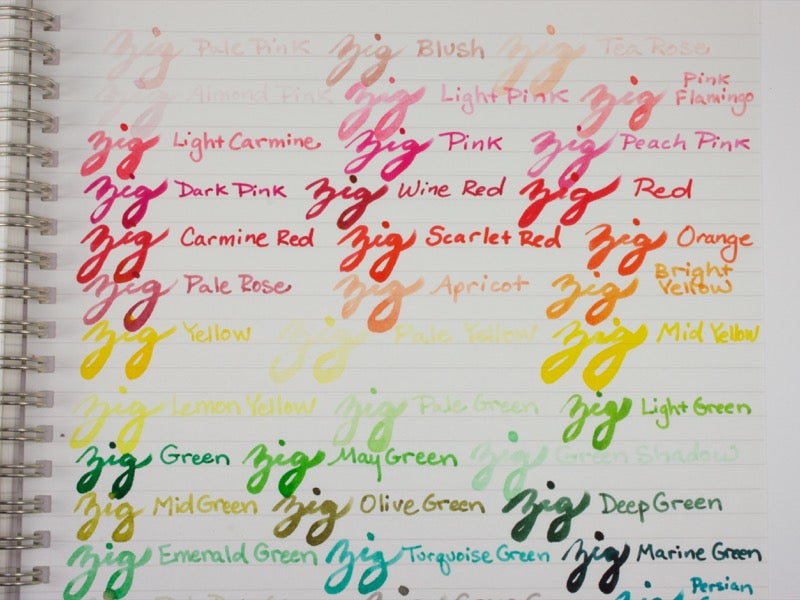 zig Pale Pink zig Blush zig Tea Rose
zig Almond Pink zig Light Pink zig Pink Flamingo
zig Light Carmine zig Pink zig Peach Pink
zig Dark Pink zig Wine Red zig Red
zig Carmine Red zig Scarlet Red zig Orange
zig Pale Rose zig Apricot zig Bright Yellow
zig Yellow zig Pale Yellow zig Mid Yellow
zig Lemon Yellow zig Pale Green zig Light Green
zig Green zig May Green zig Green Shadow
zig Mid Green zig Olive Green zig Deep Green
zig Emerald Green zig Turquoise Green zig Marine Green
Persian